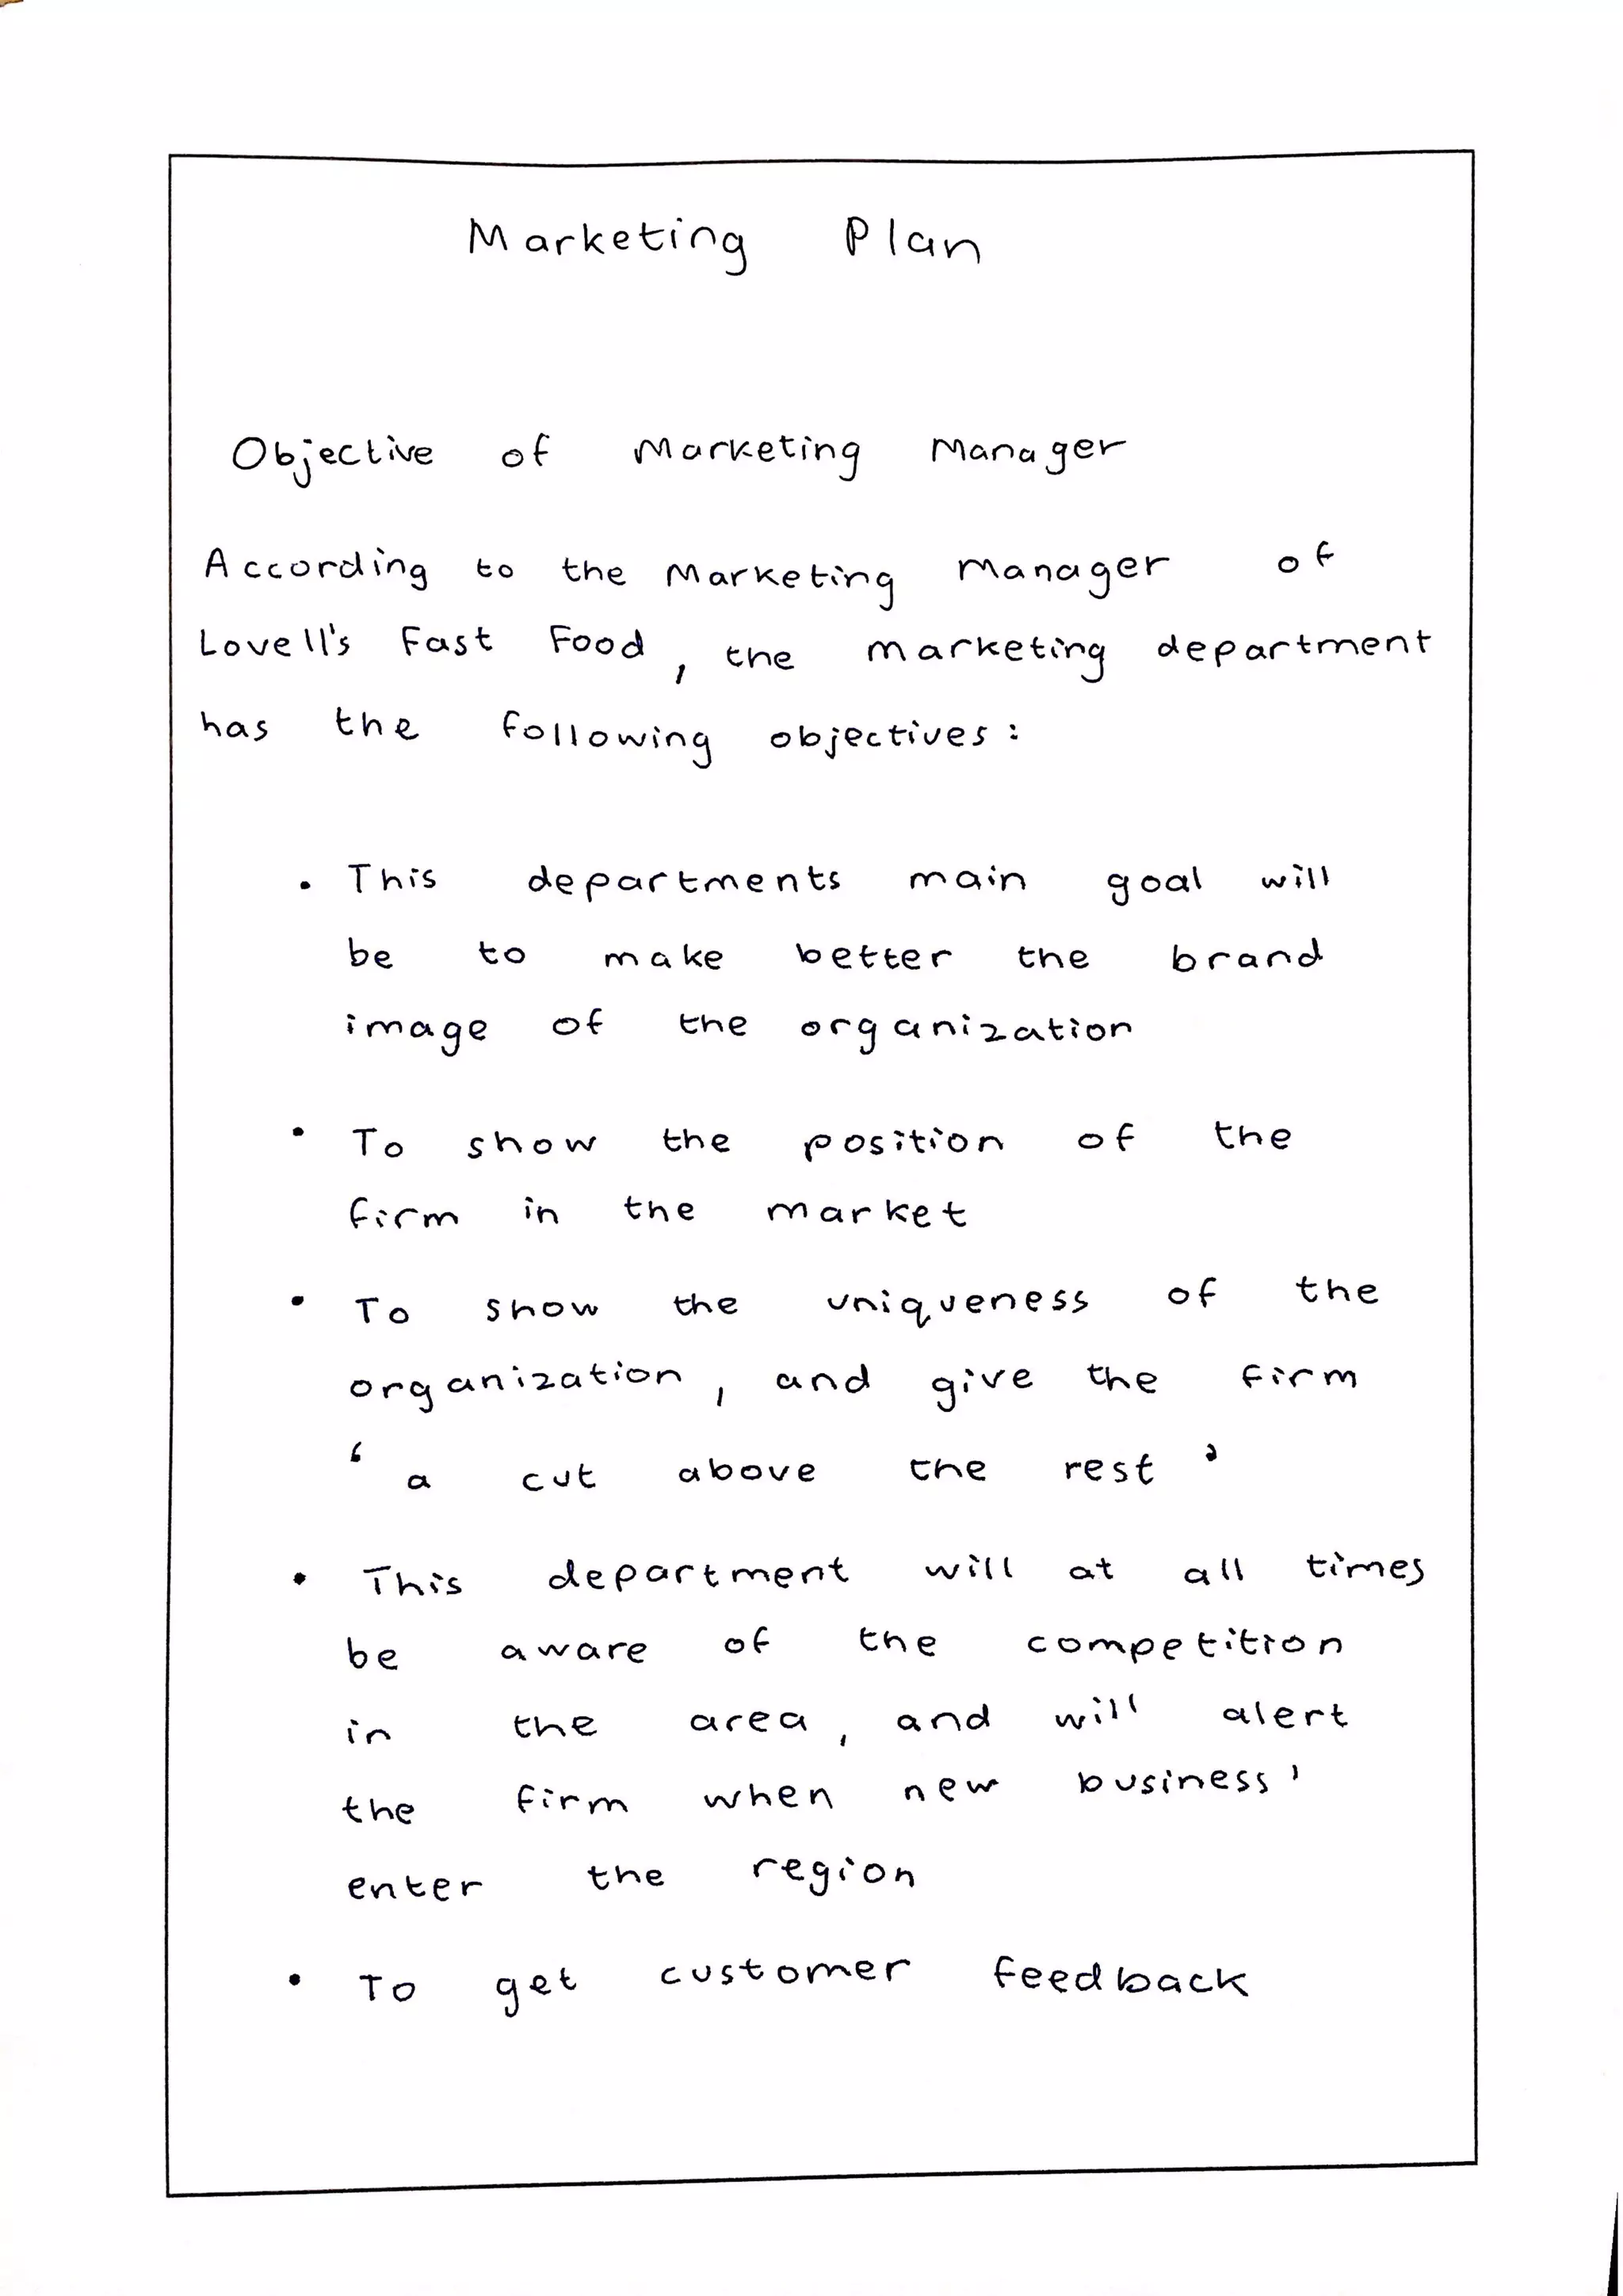 Marketing Plan
Objective of Marketing Manager
According to the Marketing Manager of
Lovell's Fast Food, the marketing department
has the following objectives:
• This departments main goal will
be to make better the brand
image of the organization
• To show the position of the
firm in the market
• To show the uniqueness of the
organization, and give the firm
'a cut above the rest'
• This department will at all times
be aware of the competition
in the area, and will alert
the firm when new business'
enter the region
• To get customer feedback